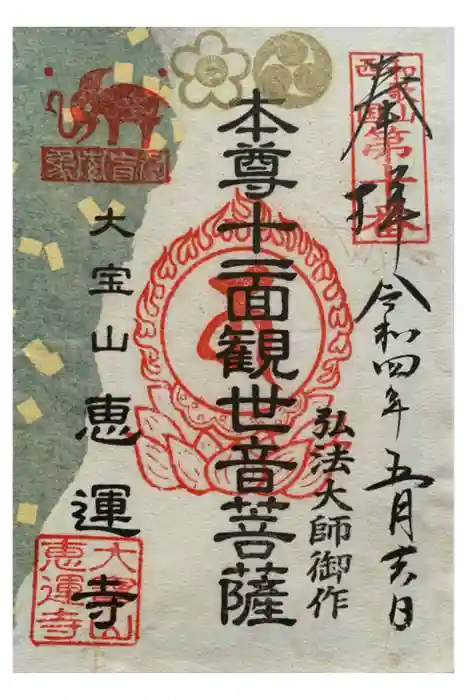 奉拝
令和四年五月十六日
弘法大師御作
本尊十一面観世音菩薩
大宝山
恵運寺
和歌山
西国
第十番
大宝山
恵運寺